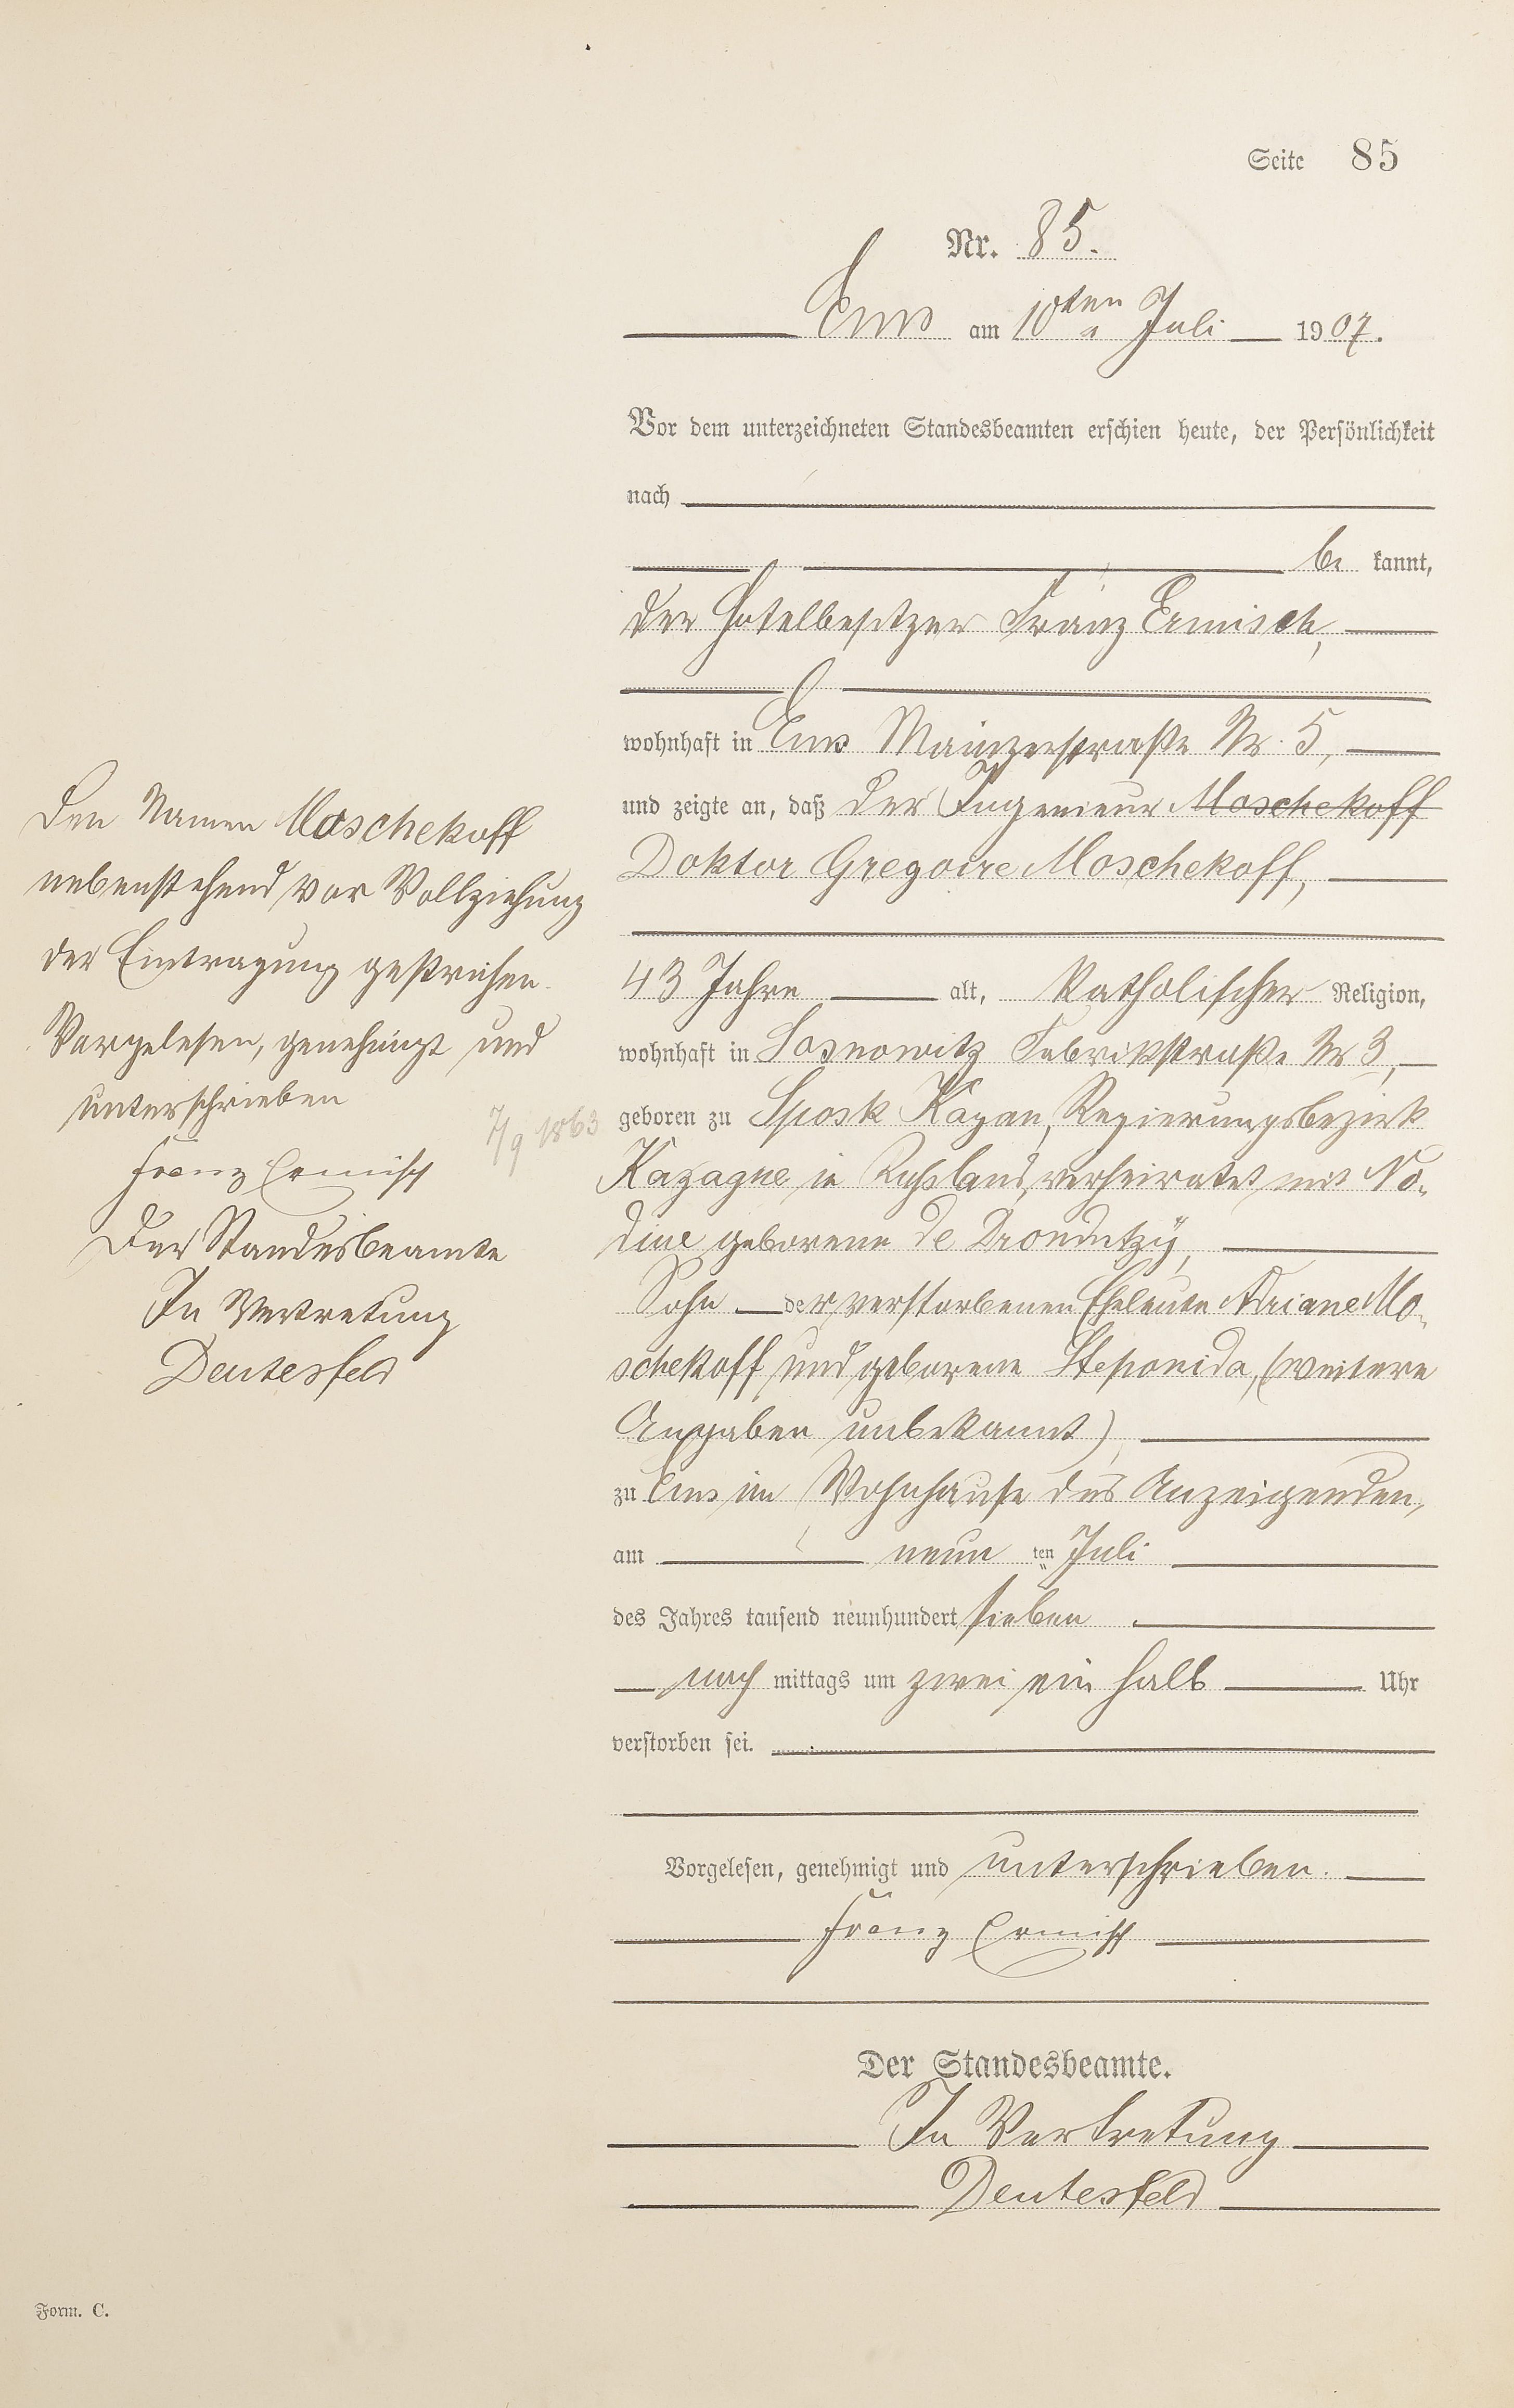 Seite 85
Nr. 85.
Ems am 10ten Juli 1907.
Vor dem unterzeichneten Standesbeamten erschien heute, der Persönlichkeit
nach
be kannt,
der Hotelbesitzer Franz Ermisch,
wohnhaft in Ems Mainzerstraße Nr. 5,
und zeigte an, daß der Ingenieur Moschekoff
Doktor Gregoire Moschekoff,
43 Jahre alt, Katholischer Religion,
wohnhaft in Sosnowitz Fabrikstraße Nr 3,
geboren zu Sposk Kazan, Regierungsbezirk
Kazagne in Rußland, verheiratet mit No-
dine geborene de Drondutzÿ,
Sohn der verstorbenen Eheleute Adriane Mo-
schekoff und geborene Steponida, (weitere
Angaben unbekannt)
zu Ems im Wohnhause des Anzeigenden,
am neun ten Juli
des Jahres tausend neunhundert sieben
nach mittags um zwei ein halb Uhr
verstorben sei.
Vorgelesen, genehmigt und unterschrieben.
Franz Ermisch
Der Standesbeamte.
In Vertretung
Deutesfeld
Den Namen Moschekoff
nebenstehend vor Vollziehung
der Eintragung gestrichen.
Vorgelesen, genehmigt und
unterschrieben
Franz Ermisch
Der Standesbeamte
In Vertretung
Deutesfeld
7/9 1863
Form. C.